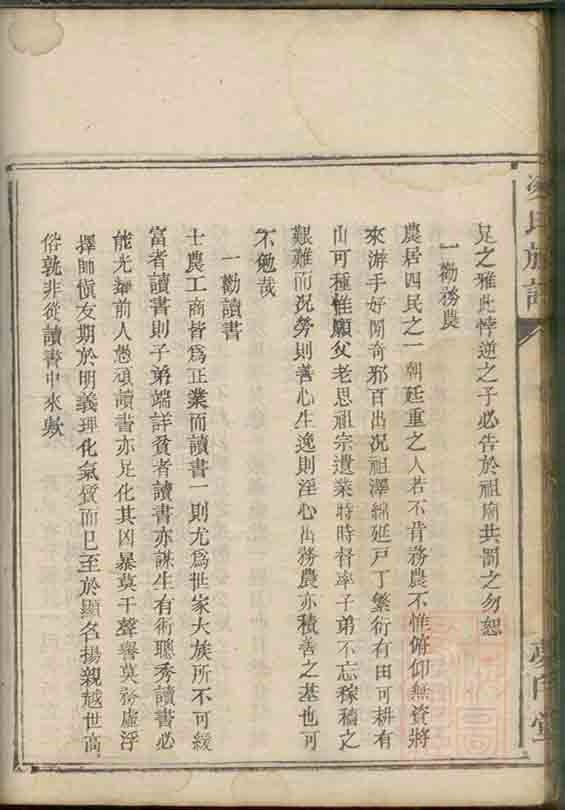 足之雅此悖逆之子必告於祖廟共罰之勿恕
一勸務農
農居四民之一朝廷重之人若不肯務農不惟俯仰無資將
來游手好閒奇邪百出况祖澤綿延戸丁繁衍有田可耕有
山可種惟願父老思祖宗遺業時時督率子弟不忘稼穡之
艱難而况勞則善心生逸則淫心出務農亦積善之基也可
不勉哉
一勸讀書
士農工商皆爲正業而讀書一則尤爲世家大族所不可緩
富者讀書則子弟端詳貧者讀書亦謀生有術聰秀讀書必
能光華前人愚頑讀書亦足化其凶暴莫干聲譽莫務虛浮
擇師慎友期於明義理化氣質而已至於顯名揚親越世高
俗孰非從讀書中來歟
氏族譜
堂